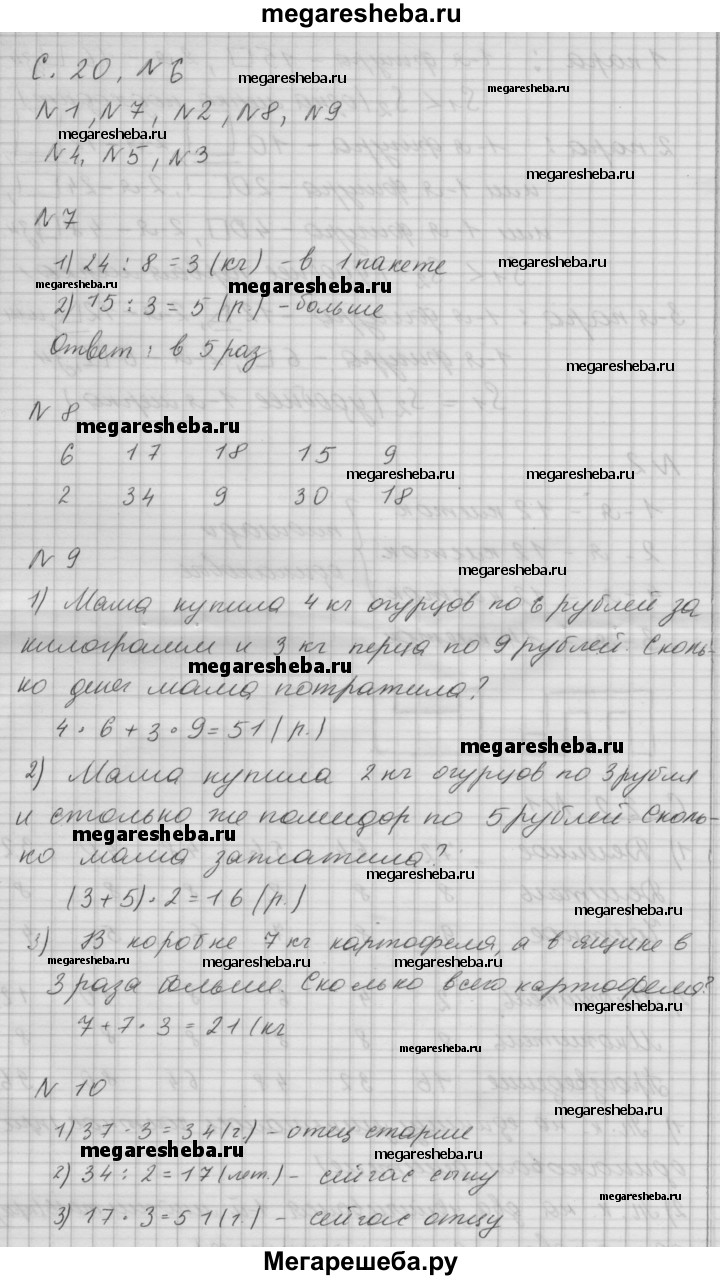 megaresheba.ru
С. 20, №6
megaresheba.ru
megaresheba.ru
№1, №7, №2, №8, №9
megaresheba.ru
№4, №5, №3
megaresheba.ru
№7
1) 24 : 8 = 3 (кг) - в 1 пакете
megaresheba.ru
megaresheba.ru
megaresheba.ru
2) 15 : 3 = 5 (р.) - больше
Ответ: в 5 раз
megaresheba.ru
№8
megaresheba.ru
6 17 18 15 9
megaresheba.ru
megaresheba.ru
2 34 9 30 18
№9
megaresheba.ru
1) Мама купила 4 кг огурцов по 6 рублей за
килограмм и 3 кг перца по 9 рублей. Сколь-
megaresheba.ru
ко денег мама потратила?
4 · 6 + 3 · 9 = 51 (р.)
megaresheba.ru
2) Мама купила 2 кг огурцов по 3 рубля
и столько же помидор по 5 рублей. Сколь-
megaresheba.ru
ко мама заплатила?
megaresheba.ru
(3 + 5) · 2 = 16 (р.)
megaresheba.ru
3) В коробке 7 кг картофеля, а в ящике в
megaresheba.ru
megaresheba.ru
megaresheba.ru
3 раза больше. Сколько всего картофеля?
megaresheba.ru
7 + 7 · 3 = 21 (кг
megaresheba.ru
№10
megaresheba.ru
1) 37 - 3 = 34 (г.) - отец старше
megaresheba.ru
2) 34 : 2 = 17 (лет.) - сейчас сыну
megaresheba.ru
3) 17 · 3 = 51 (г.) - сейчас отцу
Мегарешеба.ру